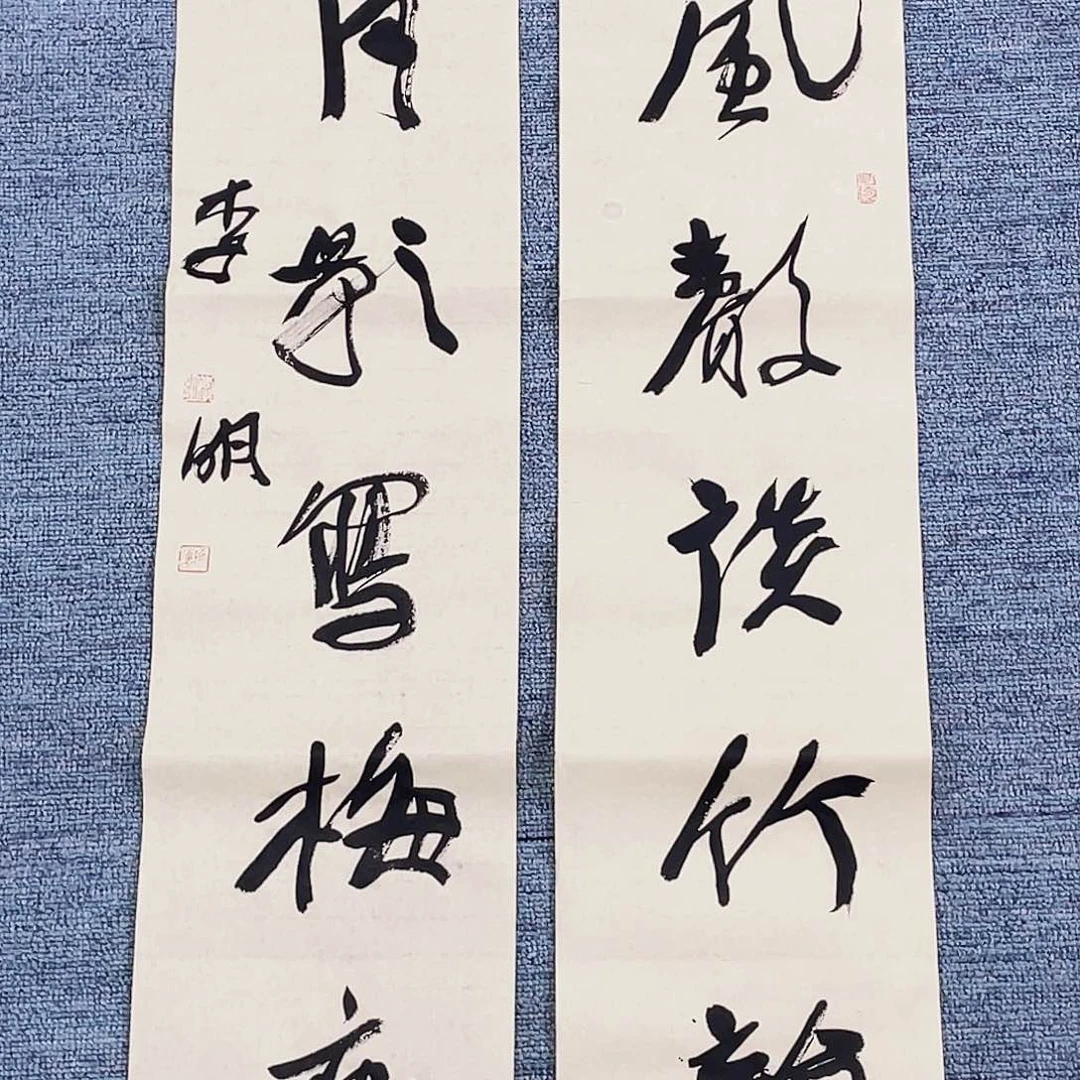 風聲談竹
月影寫梅
李明